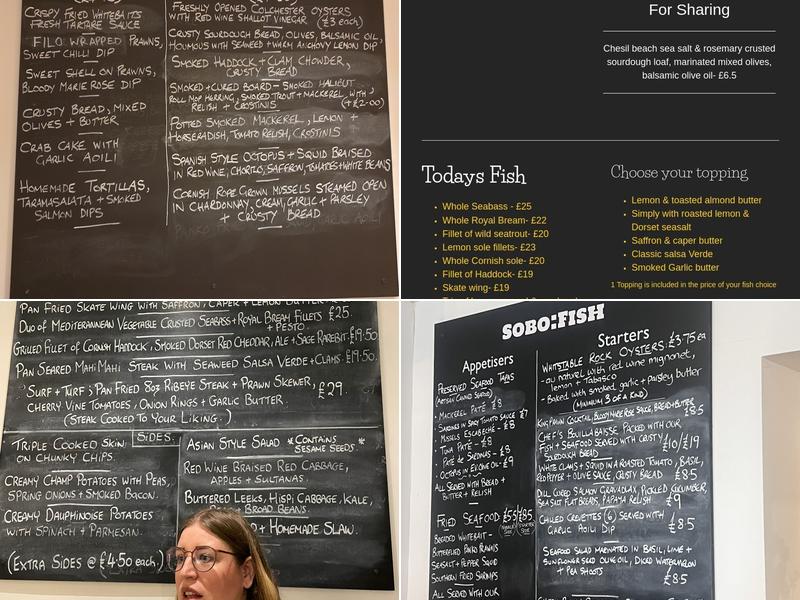 CRISPY FRIED WHITEBAITS
FRESH TARTARE SAUCE
FILO WRAPPED PRAWNS,
SWEET CHILLI DIP
SWEET SHELL ON PRAWNS,
BLOODY MARIE ROSE DIP
CRUSTY BREAD, MIXED
OLIVES + BUTTER
CRAB CAKE WITH
GARLIC AOILI
HOMEMADE TORTILLAS,
TARAMASALATA + SMOKED
SALMON DIPS
FRESHLY OPENED COLCHESTER OYSTERS
WITH RED WINE SHALLOT VINEGAR (£3 each)
CRUSTY SOURDOUGH BREAD, OLIVES, BALSAMIC OIL,
HOUMOUS WITH SEAWEED + WARM ANCHOVY LEMON DIP
SMOKED HADDOCK + CLAM CHOWDER,
CRUSTY BREAD
SMOKED + CURED BOARD - SMOKED HALIBUT,
ROLL MOP HERRING, SMOKED TROUT + MACKEREL, WITH
RELISH + CROSTINIS (+£2.00)
POTTED SMOKED MACKEREL, LEMON +
HORSERADISH, TOMATO RELISH, CROSTINIS
SPANISH STYLE OCTOPUS + SQUID BRAISED
IN RED WINE, CHORIZO, SAFFRON, TOMATOES + WHITE BEANS
CORNISH ROPE GROWN MUSSELS STEAMED OPEN
IN CHARDONNAY, CREAM, GARLIC + PARSLEY
+ CRUSTY BREAD
For Sharing
Chesil beach sea salt & rosemary crusted
sourdough loaf, marinated mixed olives,
balsamic olive oil- £6.5
Todays Fish
Whole Seabass - £25
Whole Royal Bream- £22
Fillet of wild seatrout- £20
Lemon sole fillets- £23
Whole Cornish sole- £20
Fillet of Haddock- £19
Skate wing- £19
Choose your topping
Lemon & toasted almond butter
Simply with roasted lemon &
Dorset seasalt
Saffron & caper butter
Classic salsa Verde
Smoked Garlic butter
1 Topping is included in the price of your fish choice
PAN FRIED SKATE WING WITH SAFFRON, CAPER + LEMON BUTTER
DUO OF MEDITERRANEAN VEGETABLE CRUSTED SEABASS + ROYAL BREAM FILLETS £25.
+ PESTO.
GRILLED FILLET OF CORNISH HADDOCK, SMOKED DORSET RED CHEDDAR, ALE + SAGE RAREBIT. £19.50
PAN SEARED MAHI MAHI STEAK WITH SEAWEED SALSA VERDE + CLAMS. £19.50.
SURF + TURF; PAN FRIED 8oz RIBEYE STEAK + PRAWN SKEWER,
CHERRY VINE TOMATOES, ONION RINGS + GARLIC BUTTER. £29.
(STEAK COOKED TO YOUR LIKING.)
SIDES.
TRIPLE COOKED SKIN
ON CHUNKY CHIPS.
CREAMY CHAMP POTATOES WITH PEAS,
SPRING ONIONS + SMOKED BACON.
CREAMY DAUPHINOISE POTATOES
WITH SPINACH + PARMESAN.
(EXTRA SIDES @ £4.50 each)
ASIAN STYLE SALAD *CONTAINS
SESAME SEEDS.*
RED WINE BRAISED RED CABBAGE,
APPLES + SULTANAS.
BUTTERED LEEKS, HISPI CABBAGE, KALE,
BROAD BEANS.
+ HOMEMADE SLAW.
SOBO:FISH
Appetisers
PRESERVED SEAFOOD TAPAS
- MACKEREL PATÉ £8
- SARDINES IN SPICY TOMATO SAUCE £7
- MUSSELS ESCABECHE - £8
- TUNA PATÉ - £8
- PATÉ DE SARDINAS - £8
- OCTOPUS IN OLIVE OIL - £9
ALL SERVED WITH BREAD +
BUTTER + RELISH
FRIED SEAFOOD
BREADED WHITEBAIT -
BUTTERFLIED PANKO PRAWNS
SEASALT + PEPPER SQUID
SOUTHERN FRIED SHRIMPS
ALL SERVED WITH OUR
Starters
WHITSTABLE ROCK OYSTERS. £3.75 ea
- au naturel with red wine mignonet,
lemon + Tabasco
- Baked with smoked garlic + parsley butter
(MINIMUM 3 OF A KIND)
KING PRAWN COCKTAIL, BLOODY MARIE ROSE SAUCE, BREAD + BUTTER
£8.5
CHEF'S BOUILLABAISSE PACKED WITH OUR
FISH + SEAFOOD SERVED WITH CRUSTY £10/£19
SOURDOUGH BREAD
WHITE CLAMS + SQUID IN A ROASTED TOMATO, BASIL,
RED PEPPER + OLIVE SAUCE, CRUSTY BREAD £8.5
DILL CURED SALMON GRAVADLAX, PICKLED CUCUMBER,
SEA SALT FLAT BREADS, PAPAYA RELISH £9
CHILLED CREVETTES (6) SERVED WITH
GARLIC AIOLI DIP £8.5
SEAFOOD SALAD MARINATED IN BASIL, LIME +
SUNFLOWER SEED OLIVE OIL, DICED WATERMELON
+ PEA SHOOTS £8.5